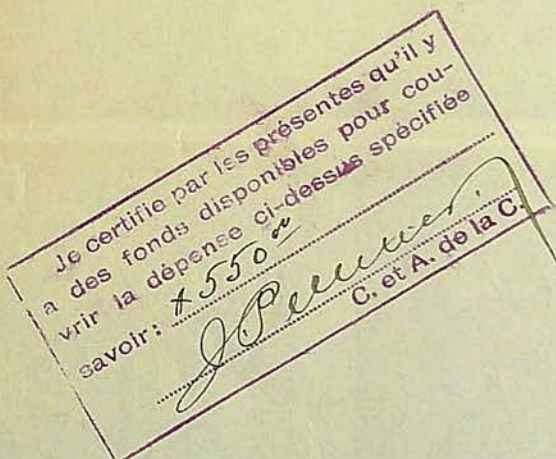 Je certifie par les présentes qu'il y
a des fonds disponibles pour cou-
vrir la dépense ci-dessus spécifiée
savoir: $550
C. et A. de la C.